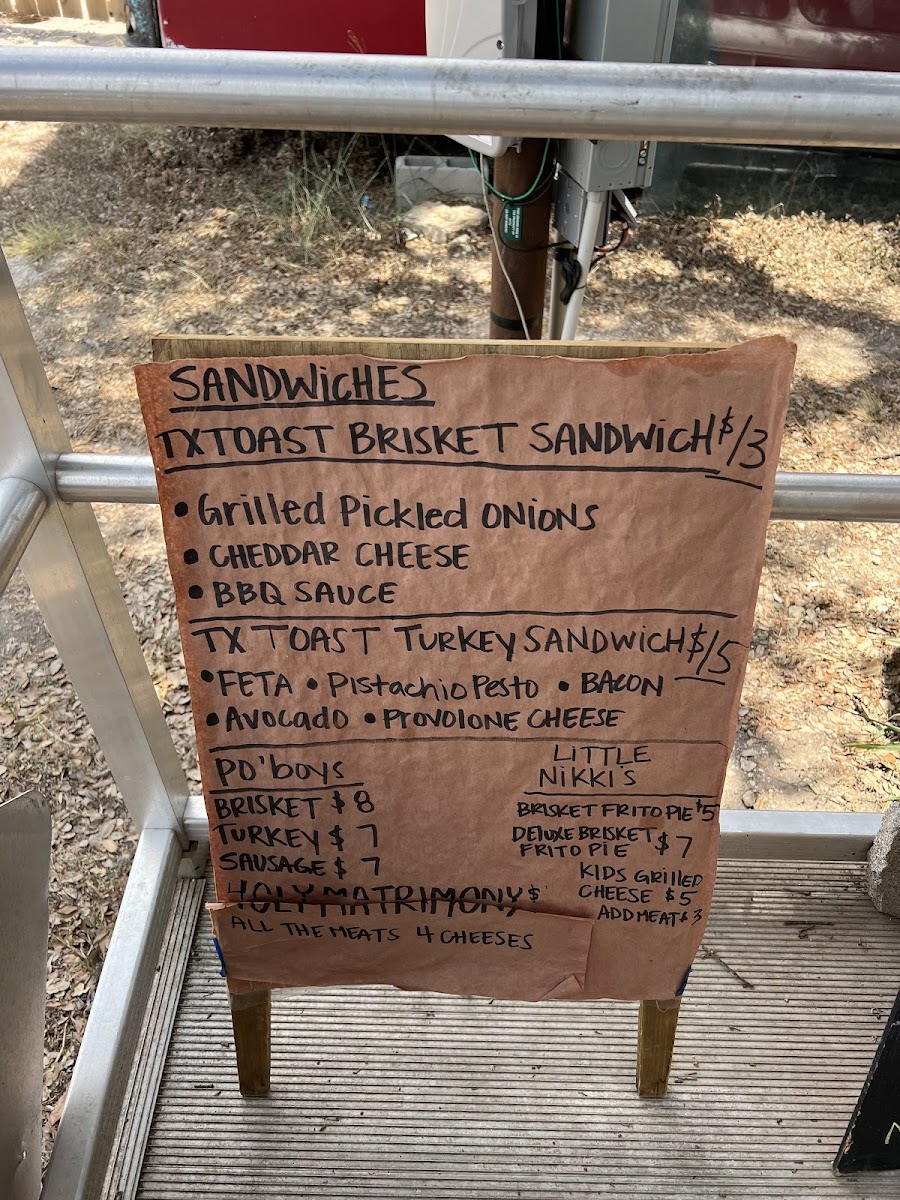 SANDWiCHES
TX TOAST BRISKET SANDWiCH $13
• Grilled Pickled ONIONS
• CHEDDAR CHEESE
• BBQ SAUCE
TX TOAST TURKEY SANDWiCH $15
• FETA • Pistachio Pesto • BACON
• Avocado • PROVOLONE CHEESE
PO'boys
BRISKET $8
TURKEY $7
SAUSAGE $7
HOLY MATRIMONY $
ALL THE MEATS 4 CHEESES
LITTLE
NiKKi'S
BRISKET FRITO PIE $5
DEluxE BRISKET
FRITO PIE $7
KIDS GRILLED
CHEESE $5
ADD MEAT $3